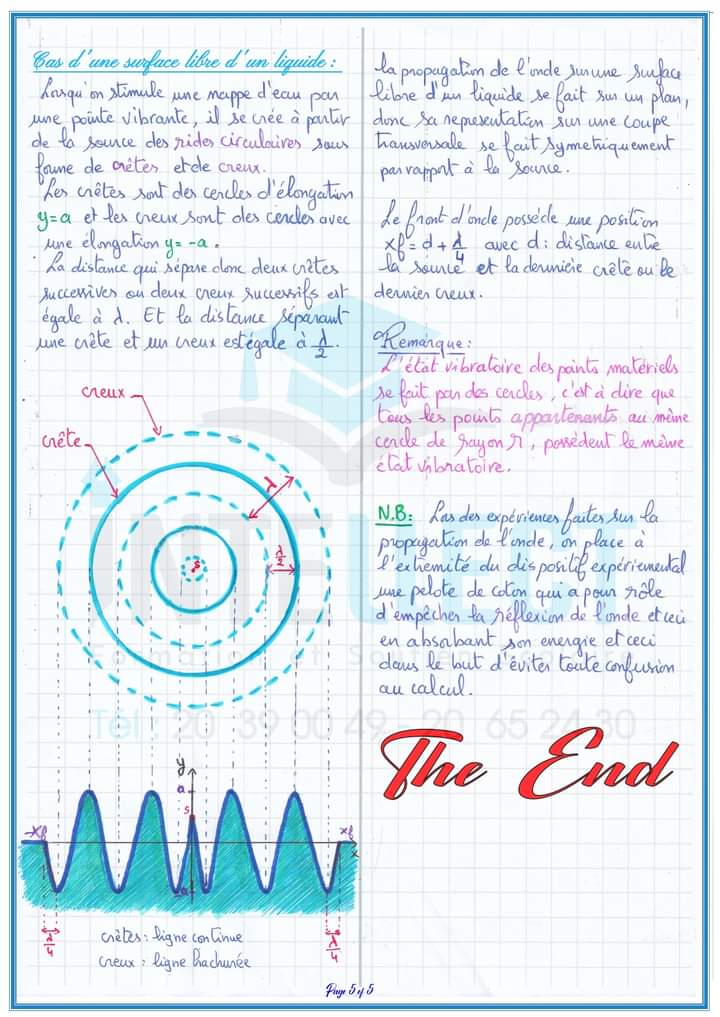 Cas d'une surface libre d'un liquide :
Lorsqu'on stimule une nappe d'eau par
une pointe vibrante, il se crée à partir
de la source des rides circulaires sous
forme de crêtes et de creux.
Les crêtes sont des cercles d'élongation
y=a et les creux sont des cercles avec
une élongation y=-a.
La distance qui sépare donc deux crêtes
successives ou deux creux successifs est
égale à λ. Et la distance séparant
une crête et un creux est égale à λ/2.
creux
crête
λ
λ/2
S
y
a
S
-xf
xf
x
-a
λ/4
λ/4
crêtes : ligne continue
creux : ligne hachurée
la propagation de l'onde sur une surface
libre d'un liquide se fait sur un plan,
donc sa representation sur une coupe
transversale se fait symetriquement
par rapport à la source.
Le front d'onde possède une position
xf = d + λ/4 avec d : distance entre
la source et la dernière crête ou le
dernier creux.
Remarque :
L'état vibratoire des points matériels
se fait par des cercles, c'est à dire que
tous les points appartenants au même
cercle de rayon r, possèdent le même
état vibratoire.
N.B: Lors des expériences faites sur la
propagation de l'onde, on place à
l'extremité du dispositif expérimental
une pelote de coton qui a pour rôle
d'empêcher la réflexion de l'onde et ceci
en absorbant son energie et ceci
dans le but d'éviter toute confusion
au calcul.
The End
INTELLECT
Tél : 20 39 00 49 - 20 65 24 30
Page 5 of 5